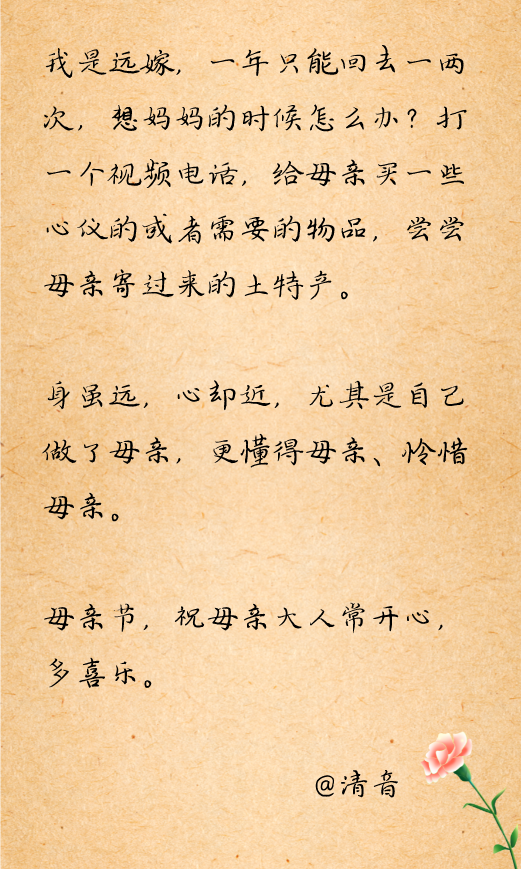 我是远嫁，一年只能回去一两
次，想妈妈的时候怎么办？打
一个视频电话，给母亲买一些
心仪的或者需要的物品，尝尝
母亲寄过来的土特产。
身虽远，心却近，尤其是自己
做了母亲，更懂得母亲、怜惜
母亲。
母亲节，祝母亲大人常开心，
多喜乐。
@清音